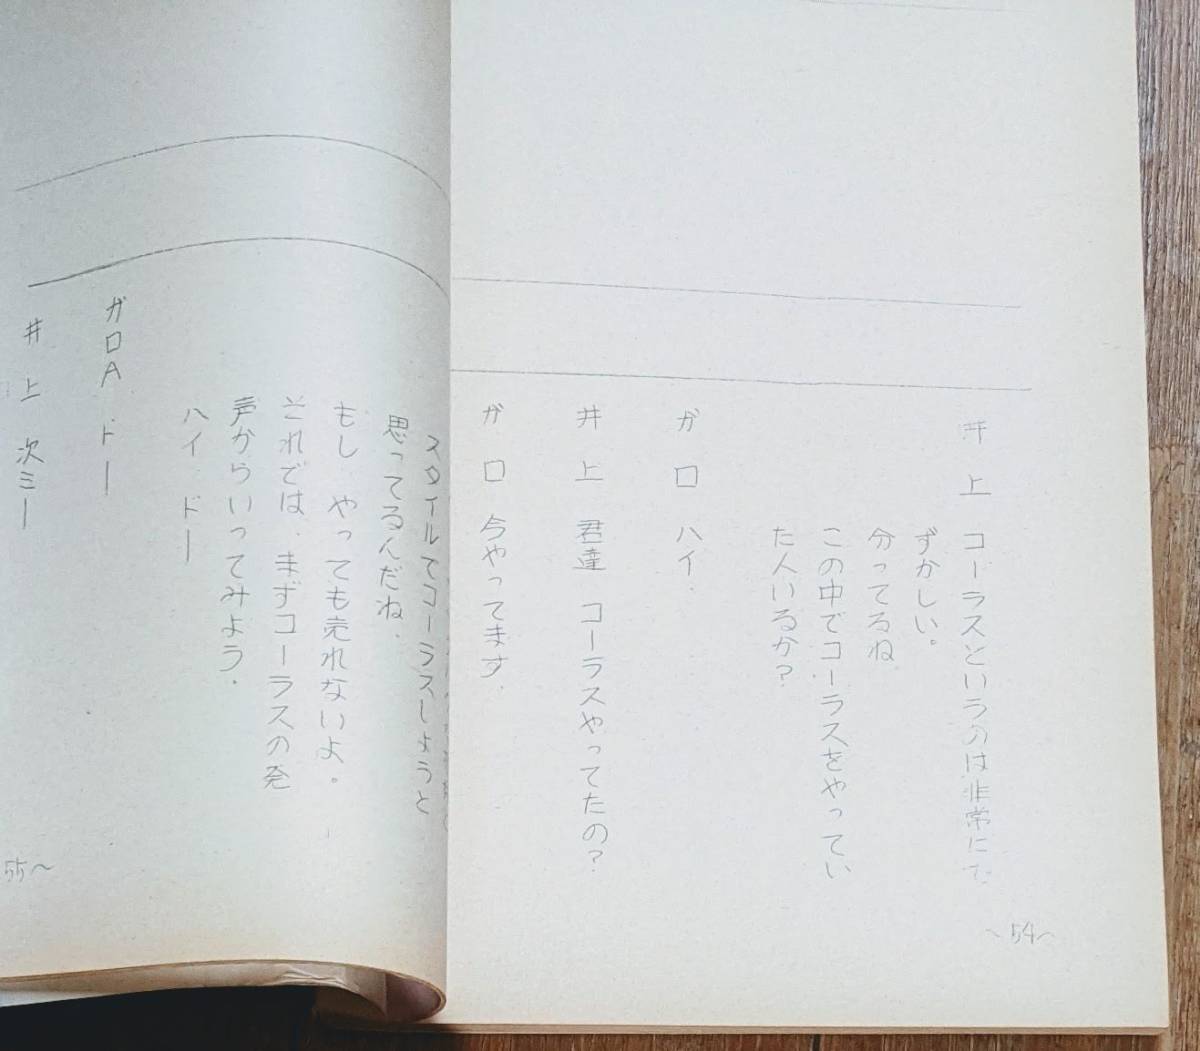 井上 コーラスというのは非常にむ
ずかしい。
分ってるね
この中でコーラスをやってい
た人いるか?
ガロ ハイ.
井上 君達 コーラスやってたの?
ガロ 今やってます.
~54~
スタイルでコーラスしようと
思ってるんだね.
もし やっても売れないよ。
それでは、まずコーラスの発
声からいってみよう.
ハイ ドー
ガロA ドー
井上 次ミー
55~